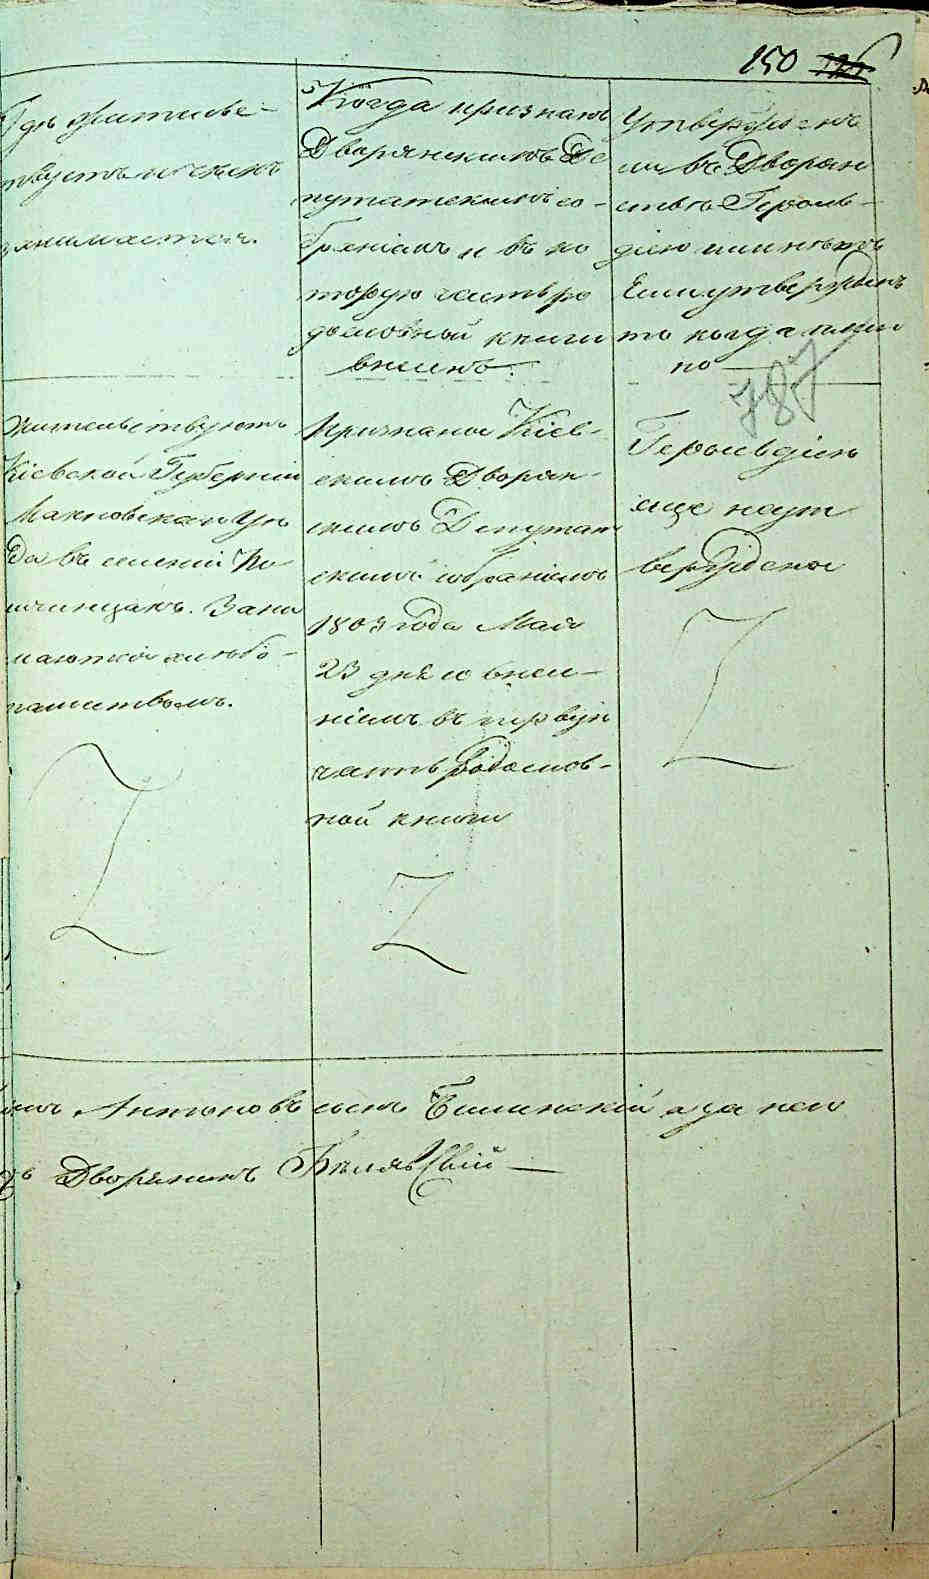 150 126
Гдѣ жительс-
твуетъ и чемъ
занимается.
Когда признанъ
Дворянскимъ Де
путатскимъ со-
браніемъ и въ ко
торую часть ро
дословной книги
внесенъ.
Утвержденъ
ли въ Дворян
ствѣ Героль-
діею или нѣтъ
Если утвержденъ
то когда имен
но
787
Жительствуютъ
Кіевской Губерніи
Махновскаго Уѣз
да въ селеніи
Зани
маются хлѣбо-
пашествомъ.
Признаны Кіев-
скимъ Дворян-
скимъ Депутат
скимъ собраніемъ
1803 года Мая
23 дня со внесе-
ніемъ въ первую
часть Родослов-
ной книги
Герольдіею
еще не ут
верждены
Антоновъ сынъ Билинскій а за него
Дворянинъ